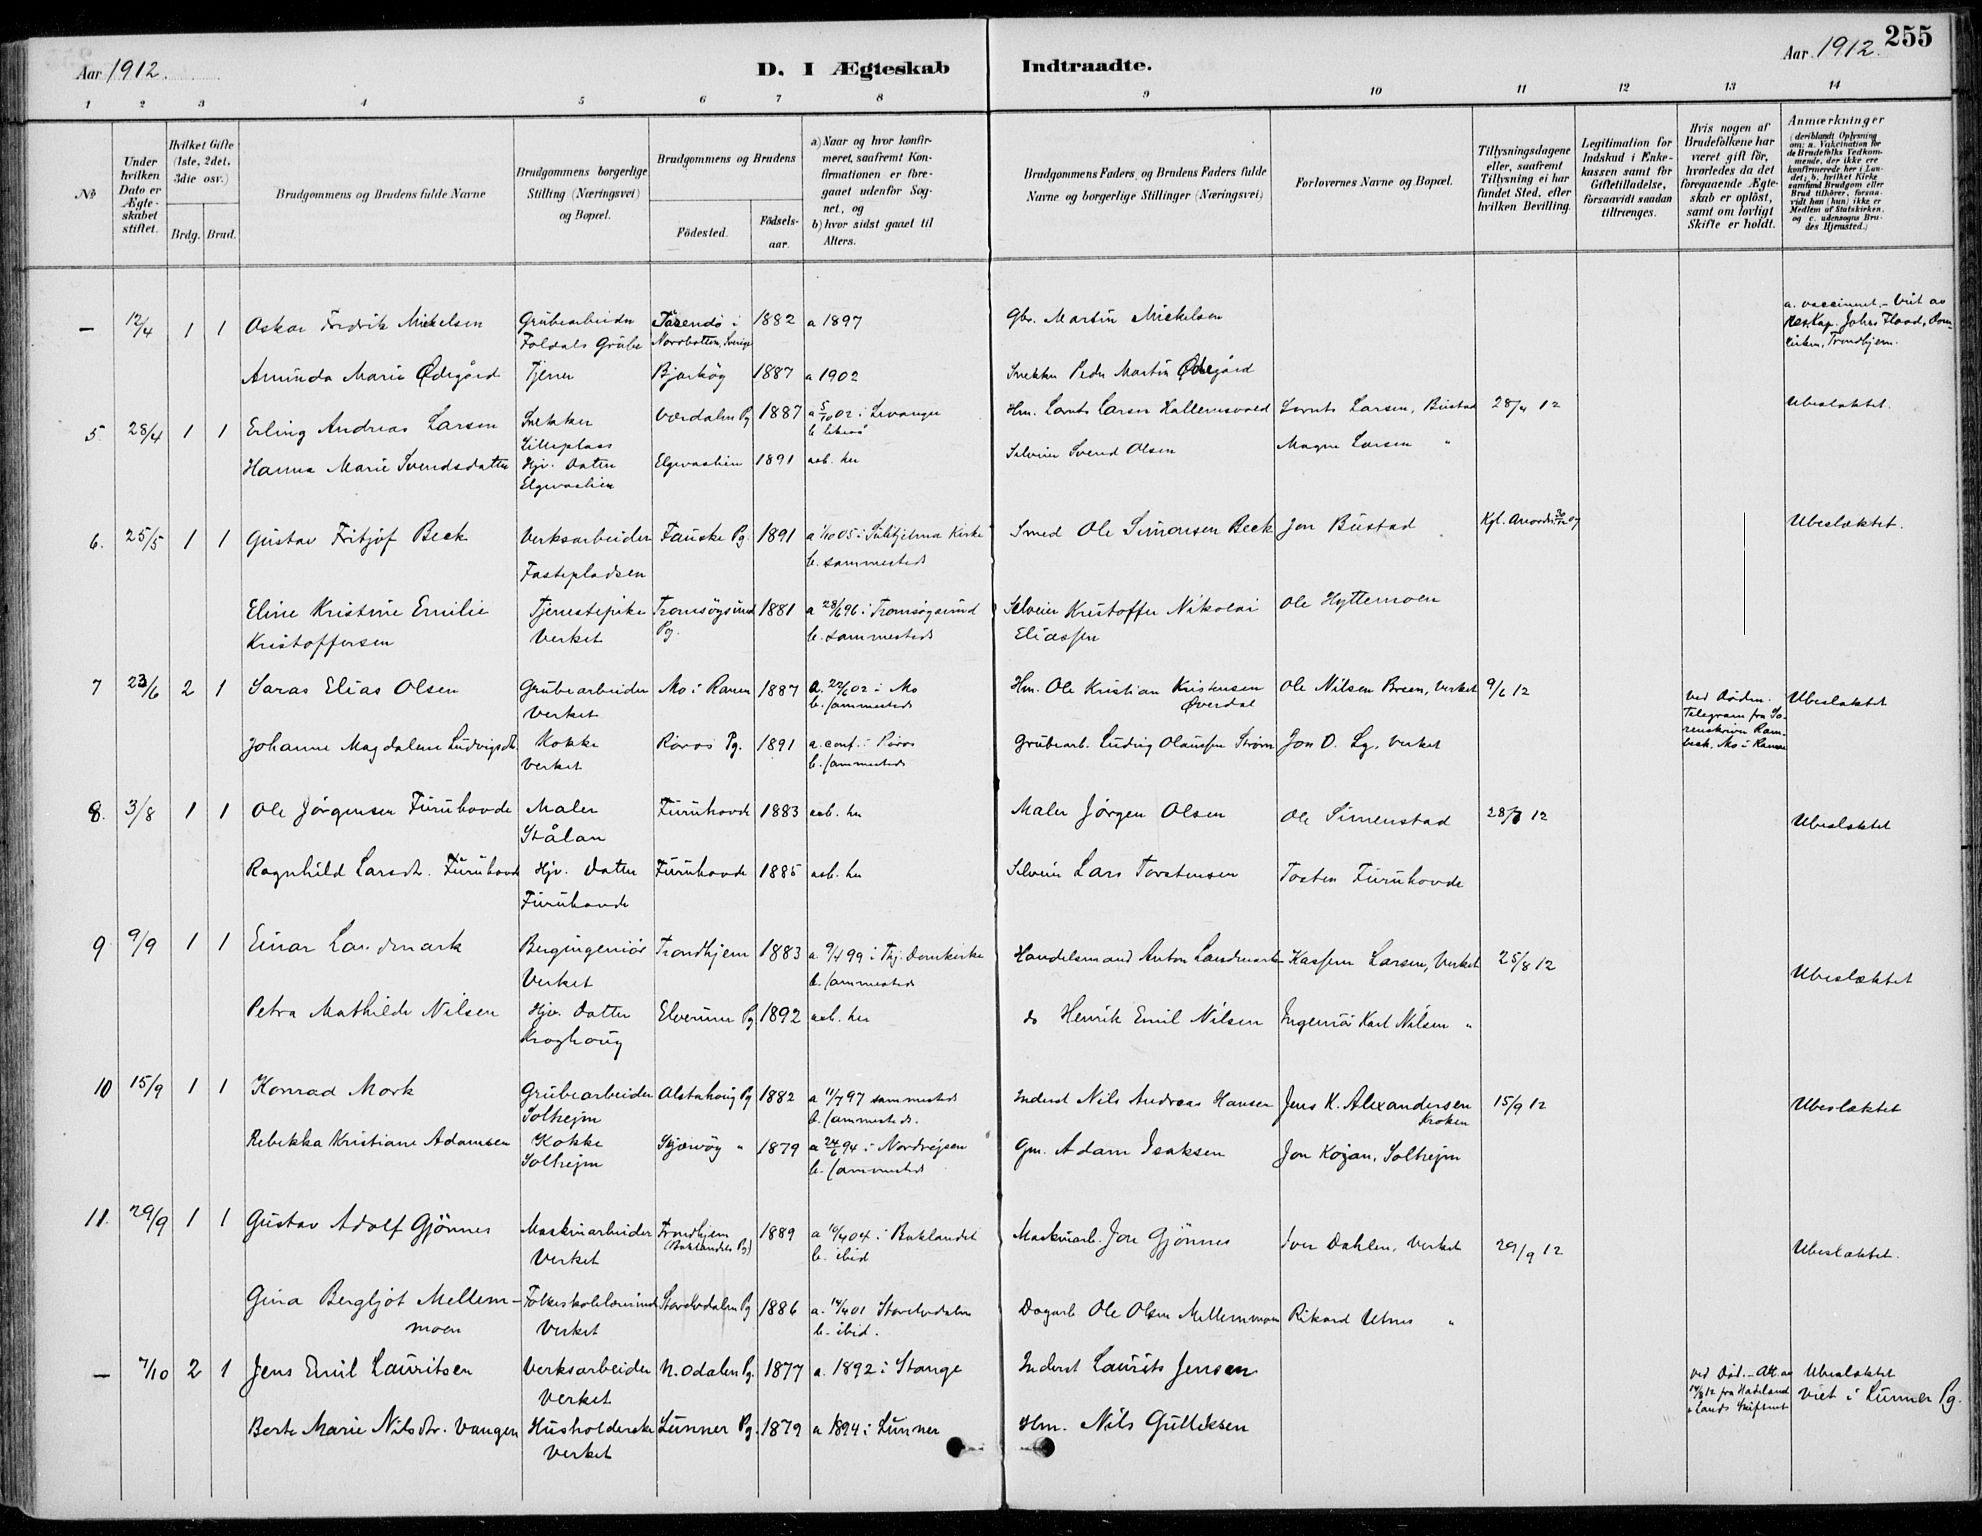 255
Aar 1912.
D. I Ægteskab
Indtraadte.
Aar 1912.
1 2 3 4 5 6 7 8 9 10 11 12 13 14
No
Under hvilken Dato er Ægteskabet stiftet.
Hvilket Gifte (1ste, 2det, 3die osv.)
Brdg. Brud.
Brudgommens og Brudens fulde Navne
Brudgommens borgerlige Stilling (Næringsvei) og Bopæl.
Brudgommens og Brudens
Födested.
Födsels-aar.
a) Naar og hvor konfirmeret, saafremt Konfirmationen er foregaaet udenfor Sognet, og
b) hvor sidst gaaet til Alters.
Brudgommens Faders, og Brudens Faders fulde Navne og borgerlige Stillinger (Næringsvei)
Forlovernes Navne og Bopæl.
Tillysningsdagene eller, saafremt Tillysning ei har fundet Sted, efter hvilken Bevilling.
Legitimation for Indskud i Enkekassen samt for Giftetilladelse, forsaavidt saadan tiltrænges.
Hvis nogen af Brudefolkene har været gift för, hvorledes da det foregaaende Ægteskab er oplöst, samt om lovligt Skifte er holdt.
Anmærkninger
(deriblandt Oplysning om: a. Vakcination for de Brudefolks Vedkommende, der ikke ere konfirmerede her i Landet; b. hvilket Kirkesamfund Brudgom eller Brud tilhörer, forsaavidt han (hun) ikke er Medlem af Statskirken, og c. udensogns Brudes Hjemsted.)
— 12/4 1 1 Oskar Fredrik Mickelsen Grubearbeider Tärendö i 1882 a 1897 Gbr. Martin Mickelsen a. vaccineret. – Viet av
Foldals Grube Norrbotten, Sverige Res. Kap. Johs Flood, Dom-
kirken, Trondhjem.
Aminda Marie Ødegård Tjener Bjarkøy 1887 a 1902 Snekker Peder Martin Ødegård
5. 28/4 1 1 Erling Andreas Larsen Snekker Værdalen Pg 1887 a 5/10 02 i Levanger Hm. Larsen Lornts Larsen, Bustad 28/4 12 Ubeslæktet.
Lilleplass
Hanna Marie Svendsdatter Hjv. Datter Elgvaslien 1891 aab. her Selveier Svend Olsen Magne Larsen "
Elgvaslien
6. 25/5 1 1 Gustav Fritjof Beck Verksarbeider Fauske Pg. 1891 a 1/10 05 i Sulitjelma Kirke Smed Ole Simonsen Beck Jon Bustad Kgl. Anordn. Ubeslæktet.
Fastepladsen b. sammesteds
Eline Kristine Emilie Tjenestepike Tromsøysund 1881 a 28/6 96 i Tromsøysund Selveier Kristoffer Nikolai Ole Hyttemoen
Kristoffersen Verket Pg. b. sammesteds Eliassen
7 23/6 2 1 Saras Elias Olsen Grubearbeider Mo i Ranen 1887 a. 22/6 02 i Mo Hm. Ole Kristian Kristensen Ole Nilsen Breen, Verket 9/6 12 Ved Døden. Ubeslæktet
Verket b. sammesteds Øverdal Telegram fra So-
renskriver Ram-
beck, Mo i Ranen
Johanne Magdalene Ludvigsdtr. Kokke Røros Pg. 1891 a. conf. i Røros Grubearb. Ludvig Olaussen Strøm Jon O. Ly, Verket
Verket b. sammesteds
8. 3/8 1 1 Ole Jørgensen Furuhovde Maler Furuhovde 1883 aab. her Maler Jørgen Olsen Ole Simenstad 28/7 12 Ubeslæktet
Stålan
Ragnhild Larsdt. Furuhovde Hjv. Datter Furuhovde 1885 aab. her Selveier Lars Torstensen Tosten Furuhovde
Furuhovde
9. 9/9 1 1 Einar Landmark Bergingeniør Trondhjem 1883 a. 9/4 99 i Thj. Domkirke Handelsmand Anton Landmark Kasper Larsen, Verket 25/8 12 Ubeslæktet
Verket b. sammesteds
Petra Mathilde Nilsen Hjv. Datter Elverum Pg 1892 aab. her do Henrik Emil Nilsen Ingeniør Karl Nilsen "
Kroghoug
10 15/9 1 1 Konrad Mork Grubearbeider Alstahoug Pg 1882 a 11/7 97 sammesteds Inderst Nils Andreas Hansen Jens K. Alexandersen 15/9 12 Ubeslæktet
Solheim b. sammesteds. Kroken
Rebekka Kristiane Adamsen Kokke Skjærvøy " 1879 a 24/6 94 i Nordreisen Gm. Adam Isaksen Jon Kojan, Solheim
Solheim b. sammesteds
11. 29/9 1 1 Gustav Adolf Gjönnes Maskinarbeider Trondhjem 1889 a 10/4 04 i Baklandet Maskinarb. Jon Gjönnes Iver Dahlen, Verket 29/9 12 Ubeslæktet.
Verket (Baklandets Pg) b. ibid
Gina Bergljot Mellem- Folkeskolelærerinde Storelvdalen Pg 1886 a. 14/4 01 Storelvdalen Dagarb Ole Olsen Mellemmoen Rikard Utnes "
moen Verket b. ibid.
— 7/10 2 1 Jens Emil Lauritsen Verksarbeider N. Odalen Pg. 1877 a. 1892 i Stange Inderst Laurits Jensen Ved Død. – Att. av Ubeslæktet
Verket 14/8 12 fra Hadeland Viet i Lunner Pg.
& Lands Skifteret
Berte Marie Nilsdtr. Vangen Husholderske Lunner Pg. 1879 a 1894 i Lunner Hm. Nils Gulliksen
Verket